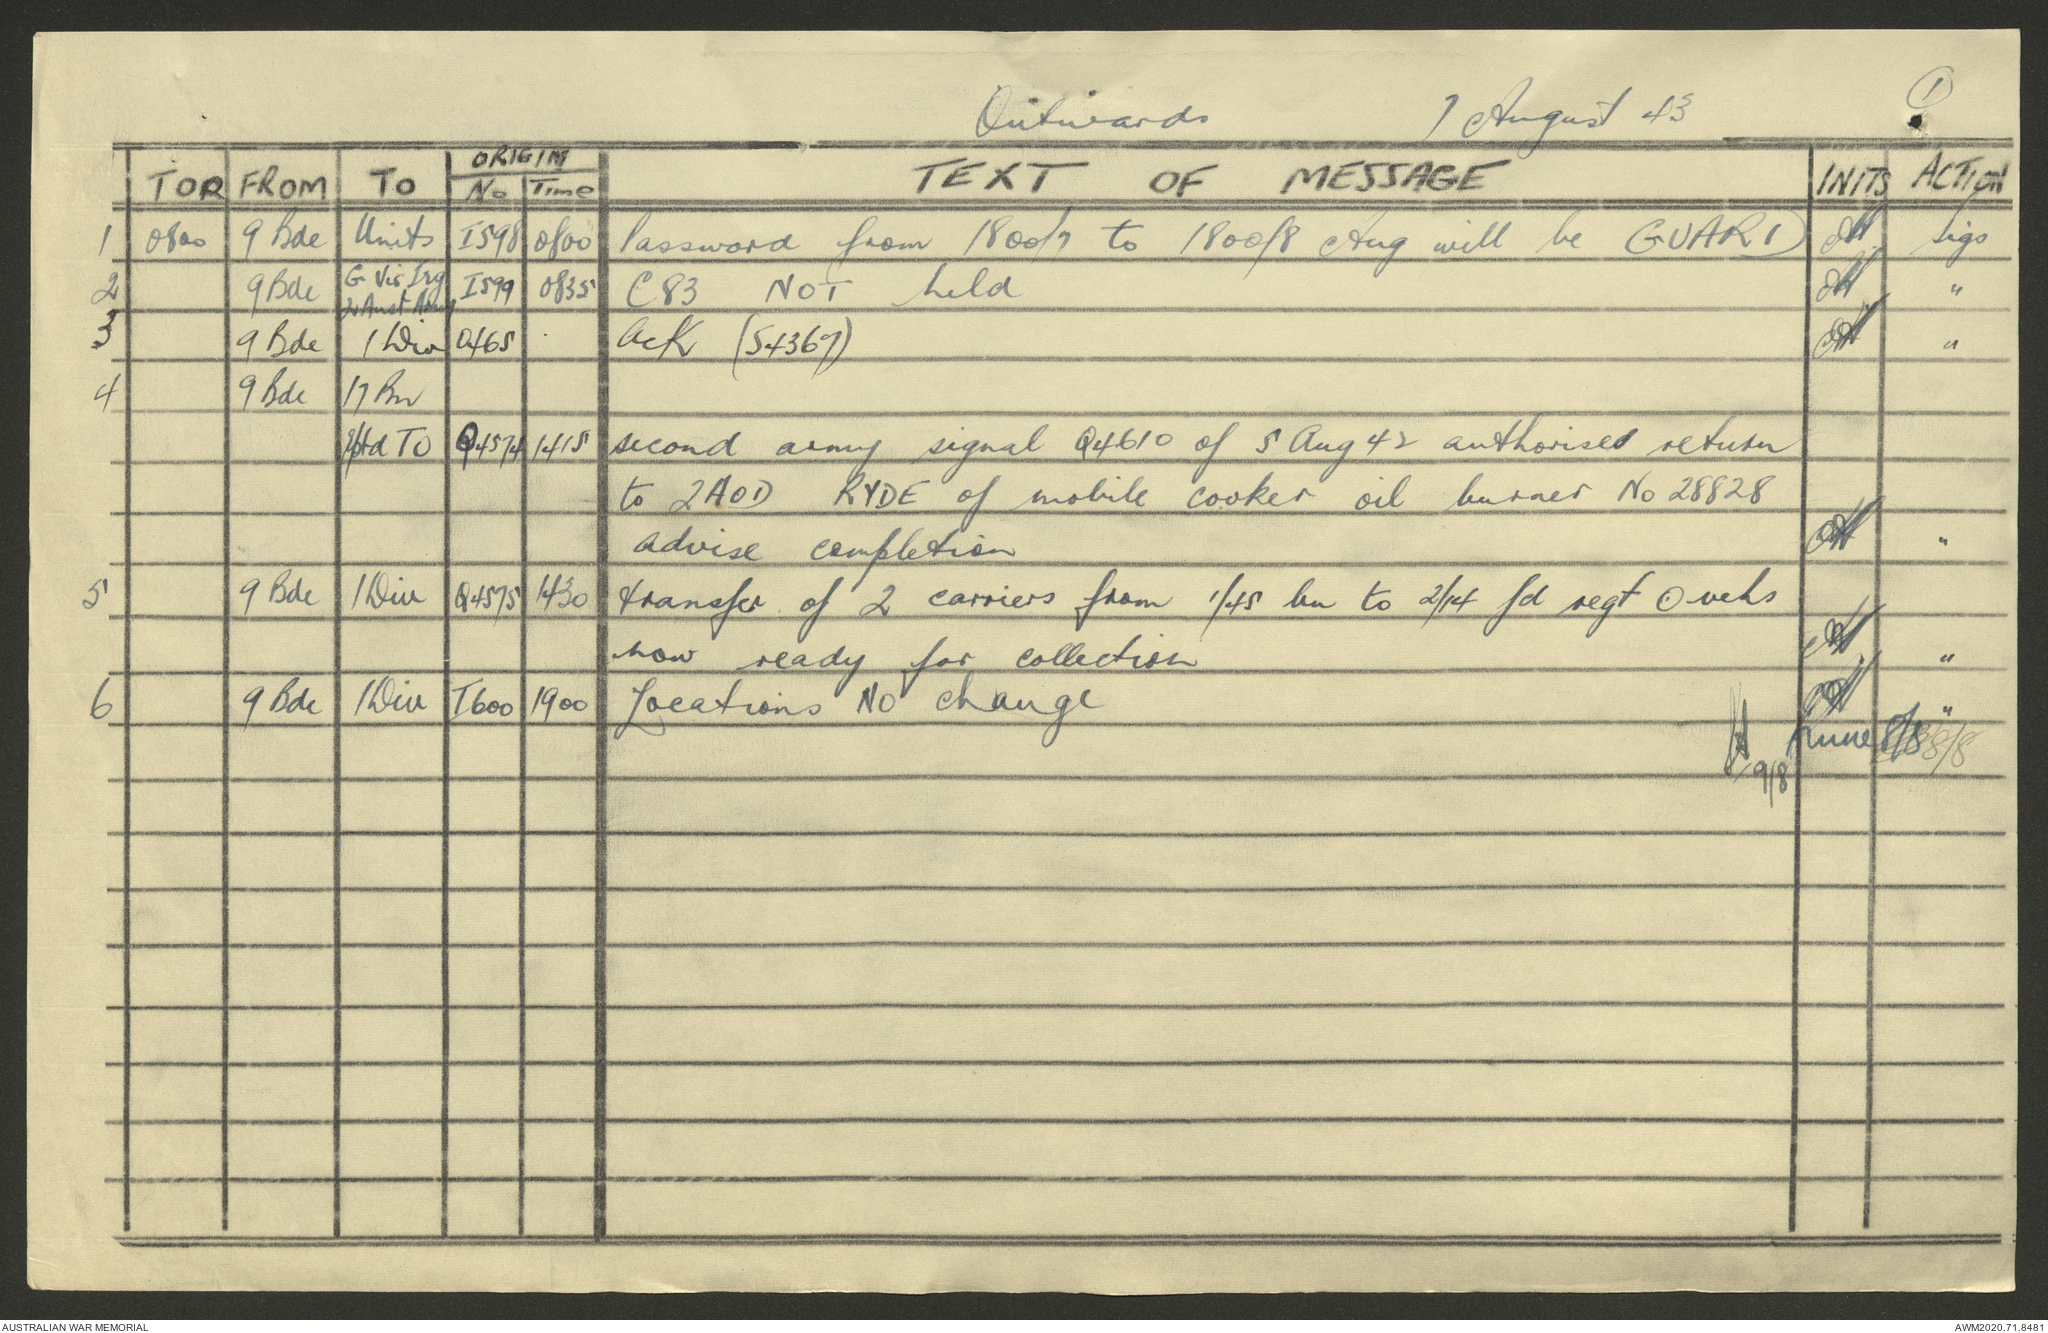 Outwards 7 August 43 1
ORIGIN
TOR FROM TO No Time TEXT OF MESSAGE INITS ACTION
1 0800 9 Bde Units I598 0800 Password from 1800/7 to 1800/8 Aug will be GUARD Sigs
2 9 Bde G Vis Trg I599 0835 C83 NOT held "
2 Aust Army
3 9 Bde 1 Div Q465 Ack (54367) "
4 9 Bde 17 Bn
Rptd TO Q4574 1415 second army signal Q4610 of 5 Aug 42 authorises return
to 2AOD RYDE of mobile cooker oil burner No 28828
advise completion "
5 9 Bde 1 Div Q4575 1430 transfer of 2 carriers from 1/45 bn to 2/14 fd regt ⊙ vehs
now ready for collection "
6 9 Bde 1 Div I600 1900 Locations No change "
8/8 8/8
9/8
AUSTRALIAN WAR MEMORIAL AWM2020.71.8481